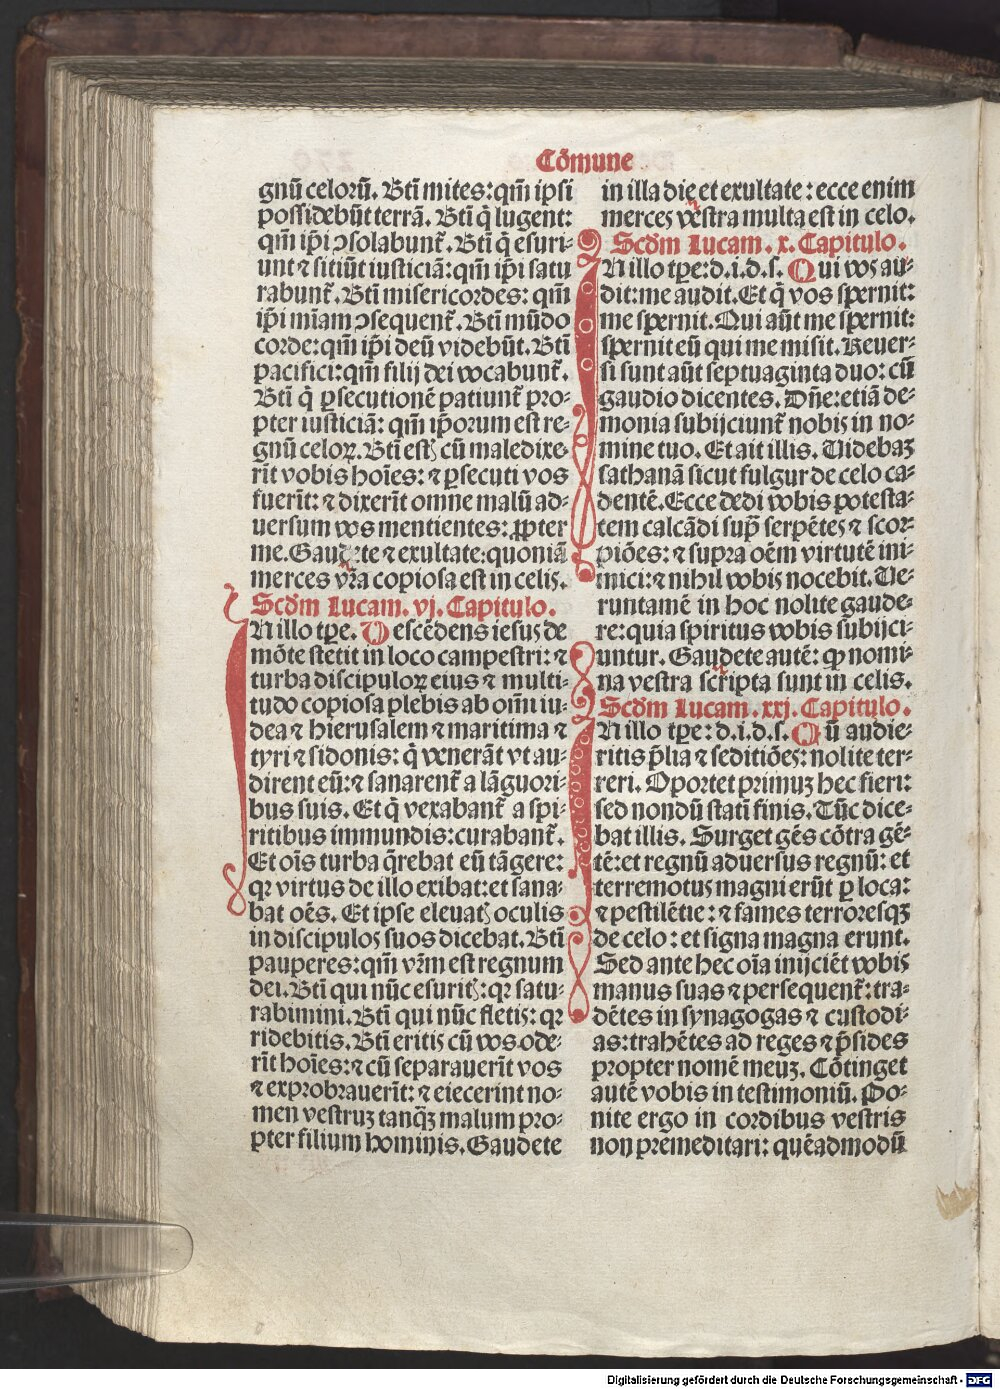 Cõmune
gnũ celorũ. Btĩ mites: qm̃ ipsi
possidebũt terrã. Btĩ q̃ lugent:
qm̃ ip̃i ↄsolabunt᷑. Btĩ q̃ esuri-
unt ⁊ sitiũt iusticiã: qm̃ ip̃i satu
rabunt᷑. Btĩ misericordes: qm̃
ip̃i mĩam ↄsequent᷑. Btĩ mũdo
corde: qm̃ ip̃i deũ videbũt. Btĩ
pacifici: qm̃ filij dei vocabunt᷑.
Btĩ q̃ ꝑsecutionẽ patiunt᷑ pro-
pter iusticiã: qm̃ ip̃orum est re-
gnũ celoꝝ. Btĩ estꝭ cũ maledixe-
rĩt vobis hoĩes: ⁊ ꝑsecuti vos
fuerĩt: ⁊ dixerĩt omne malũ ad-
uersum vos mentientes: ꝓpter
me. Gaudete ⁊ exultate: quoniã
merces vr̃a copiosa est in celis.
Scd̃m Lucam. vj. Capitulo.
IN illo tp̃e. Descẽdens iesus de
mõte stetit in loco campestri: ⁊
turba discipuloꝝ eius ⁊ multi-
tudo copiosa plebis ab om̃i iu-
dea ⁊ hierusalem ⁊ maritima ⁊
tyri ⁊ sidonis: q̃ venerãt vt au-
dirent eũ: ⁊ sanarent᷑ a lãguori-
bus suis. Et q̃ vexabant᷑ a spi-
ritibus immundis: curabant᷑.
Et oĩs turba q̃rebat eũ tãgere:
qꝛ virtus de illo exibat: et sana-
bat oẽs. Et ipse eleuatꝭ oculis
in discipulos suos dicebat. Btĩ
pauperes: qm̃ vr̃m est regnum
dei. Btĩ qui nũc esuritꝭ: qꝛ satu-
rabimini. Btĩ qui nũc fletis: qꝛ
ridebitis. Btĩ eritis cũ vos ode-
rĩt hoĩes: ⁊ cũ separauerĩt vos
⁊ exprobrauerĩt: ⁊ eiecerint no-
men vestruꝫ tanq̃ꝫ malum pro-
pter filium hominis. Gaudete
in illa die et exultate: ecce enim
merces vestra multa est in celo.
Scd̃m Lucam. x. Capitulo.
IN illo tp̃e: d. i. d. s. Qui vos au-
dit: me audit. Et q̃ vos spernit:
me spernit. Qui aũt me spernit:
spernit eũ qui me misit. Reuer-
si sunt aũt septuaginta duo: cũ
gaudio dicentes. Dñe: etiã de-
monia subijciunt᷑ nobis in no-
mine tuo. Et ait illis. Uidebaꝫ
sathanã sicut fulgur de celo ca-
dentẽ. Ecce dedi vobis potesta-
tem calcãdi sup̃ serpẽtes ⁊ scor-
piões: ⁊ supra oẽm virtutẽ ini-
mici: ⁊ nihil vobis nocebit. Ue-
runtamẽ in hoc nolite gaude-
re: quia spiritus vobis subijci-
untur. Gaudete autẽ: ꝙ nomi-
na vestra scripta sunt in celis.
Scd̃m Lucam. xxj. Capitulo.
IN illo tp̃e: d. i. d. s. Cũ audie-
ritis p̃lia ⁊ seditiões: nolite ter-
reri. Oportet primuꝫ hec fieri:
sed nondũ statĩ finis. Tũc dice-
bat illis. Surget gẽs cõtra gẽ-
tẽ: et regnũ aduersus regnũ: et
terremotus magni erũt ꝑ loca:
⁊ pestilẽtie: ⁊ fames terroresqꝫ
de celo: et signa magna erunt.
Sed ante hec oĩa inijciẽt vobis
manus suas ⁊ persequent᷑: tra-
dẽtes in synagogas ⁊ custodi-
as: trahẽtes ad reges ⁊ p̃sides
propter nomẽ meuꝫ. Cõtinget
autẽ vobis in testimoniũ. Po-
nite ergo in cordibus vestris
non premeditari: quẽadmodũ
Digitalisierung gefördert durch die Deutsche Forschungsgemeinschaft - DFG